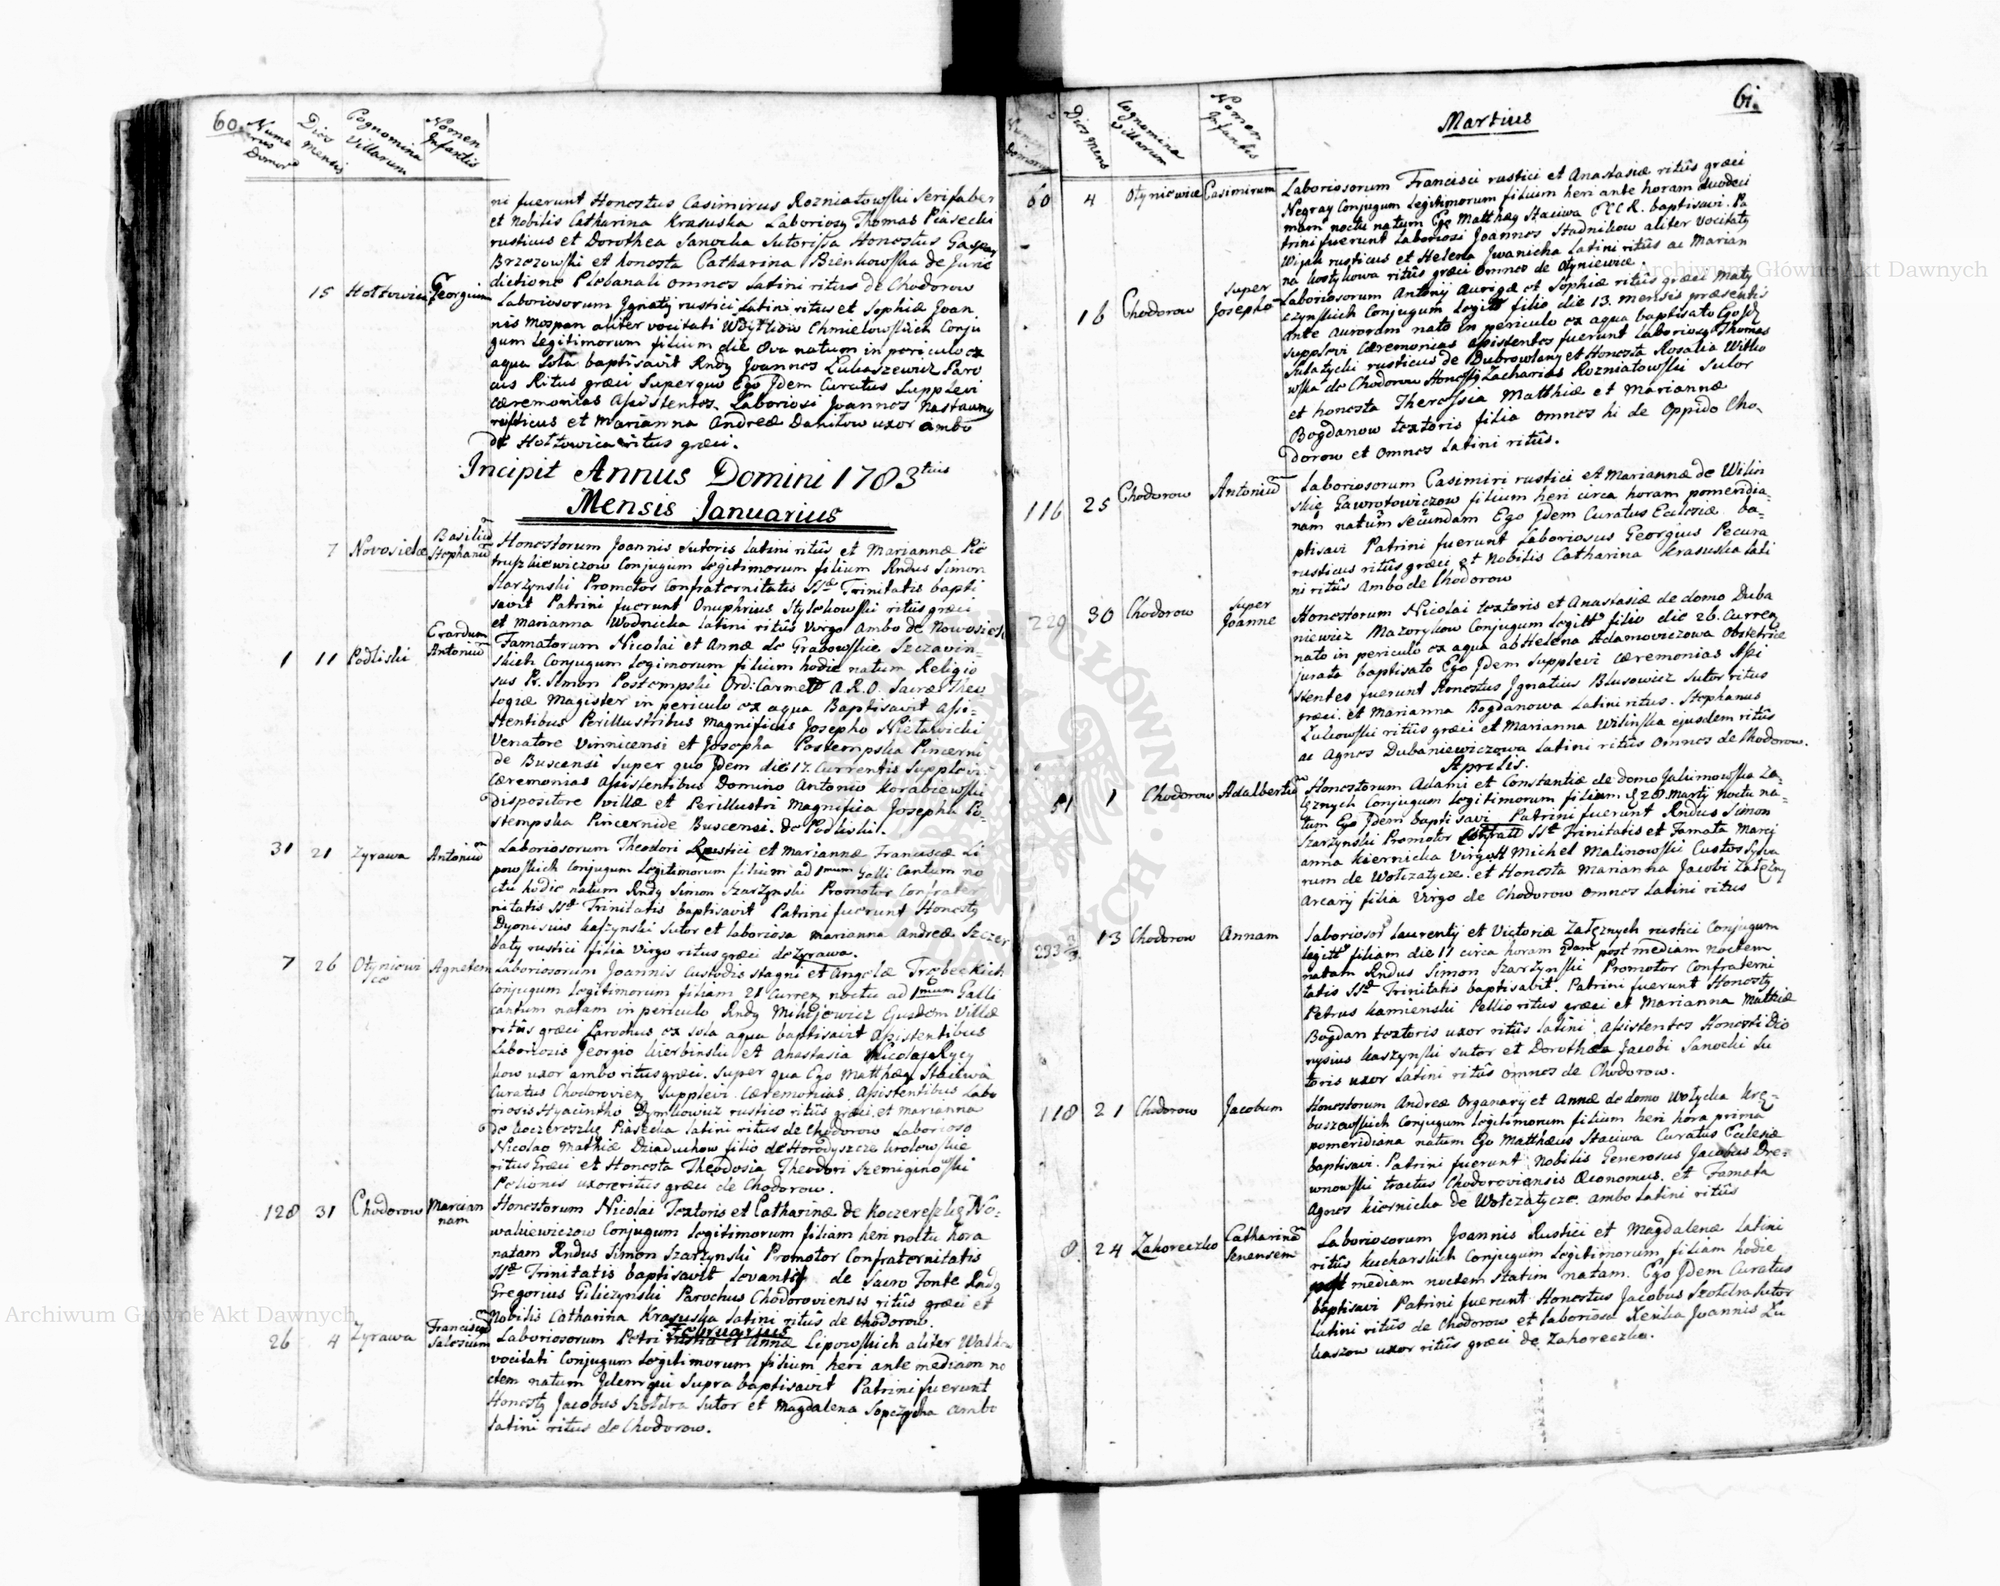 60.
Numerus Domor
Dies Mensis
Cognomina Villarum
Nomen Infantis
ni fuerunt Honestus Casimirus Rozniatowski Serifaber
et Nobilis Catharina Krasuska Laboriosy Thomas Piasecki
rusticus et Dorothea Sanocka Sutorissa Honestus Gaspar
Brzezowski et honesta Catharina Bienkowska de Juris
dictione Plebanali omnes Latini ritus de Chodorow
15 Hołdowice Georgium Laboriosorum Ignatij rustici Latini ritus et Sophiæ Joan
nis Mospan aliter vocitati Chmielowskich Conju
gum Legitimorum filium die 8va natum in periculo ex
aqua sola baptisavit Rndy Joannes Lukaszewicz Paro
cus Ritus græci Superquo Ego Idem Curatus Supplevi
Cæremonias Assistentes Laboriosi Joannes Nastawny
rusticus et Marianna Andreæ Daniłow uxor ambo
de Hołdowice ritus græci.
Incipit Annus Domini 1783tius
Mensis Januarius
7 Novosielce Basiliũ Stephanũ Honestorum Joannis Sutoris Latini ritûs et Mariannæ Pie
truszkiewiczow Conjugum Legitimorum filium Rndus Simon
Szarzynski Promotor Confraternitatis SSæ Trinitatis bapti
savit Patrini fuerunt Onuphrius ritûs græci
et Marianna Wodnicka Latini ritûs Virgo Ambo de Nowosielce
1 11 Podliski Erardum Antoniũ Famatorum Nicolai et Annæ de Grabowskie Szczavin
skich Conjugum Legimorum filium hodie natum Religio
sus P. Simon Postempski Ord: Carmet A.R.O. Sacræ Theo
logiæ Magister in periculo ex aqua Baptisavit Assi-
stentibus Perillustribus Magnificis Josepho Nietawicki
Venatore Vinnicensi et Josepha Postempska Pincerni
de Buscensi Super quo Idem die 17. Currentis Supplevi
Cæremonias Assistentibus Domino Antonio Korabiewski
Dispositore Villæ et Perillustri Magnifica Josepha Po-
stempska Pincernide Buscensi. de Podliski.
31 21 Zyrawa Antoniũ Laboriosorum Theodori Rustici et Mariannæ Franciscæ Li
powskich Conjugum Legitimorum filium ad 1mum Galli Cantum no
ctu hodie natum Rndy Simon Szarzynski Promotor Confrater
nitatis SSæ Trinitatis baptisavit Patrini fuerunt Honesty
Dyonisius Kaszynski Sutor et Laboriosa Marianna Andreæ Szczer
baty rustici filia Virgo ritus græci de Zyrawa.
7 26 Otyniowice Agnetem Laboriosorum Joannis Custodis stagni et Angelæ Trebeckich
Conjugum Legitimorum filiam 21 Curren noctu ad 1mum Galli
cantum natam in periculo Rndy Ejusdem Villæ
ritûs græci Parochus ex sola aqua baptisavit Assistentibus
Laboriosis Georgio Kierbinski et Anastasia Nicolai
kow uxor ambo ritus græci. Super qua Ego Matthæy Staciwa
Curatus Chodorovien Supplevi Cæremonias. Assistentibus Labo
riosis Hyacintho Dymkowicz rustico ritûs græci et Marianna
de Koczereszkę Piasecka Latini ritus de Chodorow Laborioso
Nicolao Mathiæ Dziaduchow filio de Horodyszcze Krolowskie
ritus Græci et Honesta Theodosia Theodori Szemiginowski
Pelionis uxore ritus græci de Chodorow.
128 31 Chodorow Mariannam Honestorum Nicolai Textoris et Catharinæ de Koczereszkę No-
wakiewiczow Conjugum Legitimorum filiam heri noctu hora
natam Rndus Simon Szarzynski Promotor Confraternitatis
SSæ Trinitatis baptisavit Levantes de Sacro Fonte Rndy
Gregorius Giliczynski Parochus Chodoroviensis ritûs græci et
Nobilis Catharina Krasuska Latini ritûs de Chodorow.
Februarius
26 4 Zyrawa Franciscũ Salesium Laboriosorum Petri rustici et Annæ Lipowskich aliter
vocitati Conjugum Legitimorum filium heri ante mediam no
ctem natum Idem qui Supra baptisavit Patrini fuerunt
Honesty Jacobus Szoldra Sutor et Magdalena ambo
Latini ritus de Chodorow.
61.
Dies Mens
Cognomina Villarum
Nomen Infantis
Martius
60 4 Otyniowice Casimirum Laboriosorum Francisci rustici et Anastasiæ ritûs græci
Negray Conjugum Legitimorum filium heri ante horam duodeci
mam noctu natum Ego Matthæy Staciwa baptisavi. Pa
trini fuerunt Laboriosi Joannes Stadnikow aliter vocitaty
Wijak rusticus et Helena Jwanicka Latini ritûs ac Marian
na Kostykowa ritûs græci omnes de Otyniewice.
16 Chodorow super Josepho Laboriosorum Antonij Aurigæ et Sophiæ ritus græci Maty
czynskich Conjugum Legittõ filio die 13. mensis præsentis
ante auroram nato in periculo ex aqua baptisato Ego
supplevi Cæremonias assistentes fuerunt Laboriosy Thomas
Sulatycki rusticus de Dubrowlany et Honesta Rosalia Witko
wska de Chodorow Honesty Zacharias Rozniatowski Sutor
et honesta Theressia Matthiæ et Mariannæ
Bogdanow textoris filia omnes hi de Oppido Cho-
dorow et omnes Latini ritûs.
116 25 Chodorow Antoniũ Laboriosorum Casimiri rustici et Mariannæ de Wilin
skie Gawrotowiczow filium heri circa horam pomeridia-
nam natum secundam Ego Idem Curatus Ecclesiæ ba-
ptisavi Patrini fuerunt Laboriosus Georgius Pecura
rusticus ritûs græci et Nobilis Catharina Krasuska Lati
ni ritûs Ambo de Chodorow
229 30 Chodorow super Joanne Honestorum Nicolai textoris et Anastasiæ de domo Duba
niewicz Mazorykow Conjugum Legittõ filio die 26. Curren
nato in periculo ex aqua ab Helena Adamoviczowa Obstetrice
jurata baptisato Ego Idem supplevi Cæremonias Assi
stentes fuerunt Honestus Ignatius Blusowicz Sutor ritus
græci. et Marianna Bogdanowa Latini ritus. Stephanus
Lukowski ritûs græci et Marianna Wilinska ejusdem ritûs
ac Agnes Dubaniewiczowa Latini ritûs omnes de Chodorow.
Aprilis.
51 1 Chodorow Adalbertũ Honestorum Adami et Constantiæ de domo Jakimowska Za-
łęznych Conjugum Legitimorum filium d 28. Martij Noctu na-
tum Ego Idem baptisavi Patrini fuerunt Rndus Simon
Szarzynski Promotor SSæ Trinitatis et Famata Marij
anna Kiernicka Virgo Michel Malinowski Custos Sylva
rum de Wołczatycze. et Honesta Marianna Jacobi Załęzny
Arcarij filia Virgo de Chodorow omnes Latini ritus
233 13 Chodorow Annam Laboriosor Laurentij et Victoriæ Załęznych rustici Conjugum
legittõ filiam die 11 circa horam 2dam post mediam noctem
natam Rndus Simon Szarzynski Promotor Confraterni
tatis SSæ Trinitatis baptisavit. Patrini fuerunt Honesty
Petrus Kamienski Pellio ritus græci et Marianna Matthiæ
Bogdan textoris uxor ritûs Latini Assistentes Honesti Dio
nysius Kaszynski Sutor et Dorothea Jacobi Sanocki Su
toris uxor Latini ritûs omnes de Chodorow.
118 21 Chodorow Jacobum Honestorum Andreæ Organarij et Annæ de domo Wołycka Krę-
buszowskich Conjugum Legitimorum filium heri hora prima
pomeridiana natum Ego Matthæus Staciwa Curatus Ecclesiæ
baptisavi. Patrini fuerunt Nobilis Generosus Jacobus Dre-
wnowski tractus Chodoroviensis Œconomus. et Famata
Agnes Kiernicka de Wołczatycze. ambo Latini ritûs
8 24 Zahoreczko Catharinã Senensem Laboriosorum Joannis Rustici et Magdalenæ Latini
ritûs Kucharskich Conjugum Legitimorum filiam hodie
post mediam noctem statim natam. Ego Idem Curatus
baptisavi Patrini fuerunt Honestus Jacobus Szoldra Sutor
Latini ritûs de Chodorow et Laboriosa Xenika Joannis Lu
kaszow uxor ritûs græci de Zahoreczko.
Archiwum Główne Akt Dawnych
Archiwum Główne Akt Dawnych